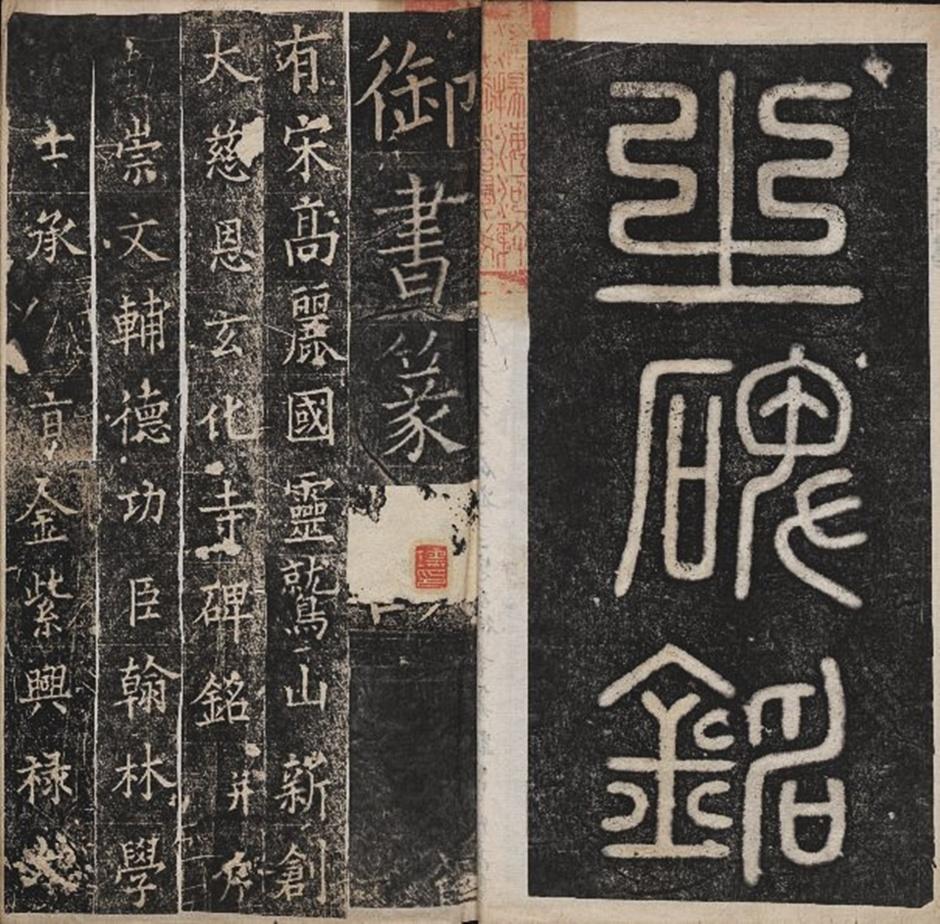 之碑銘
御書篆
有宋高麗國靈鷲山新創
大慈恩玄化寺碑銘并序
崇文輔德功臣翰林學
士承旨金紫興祿